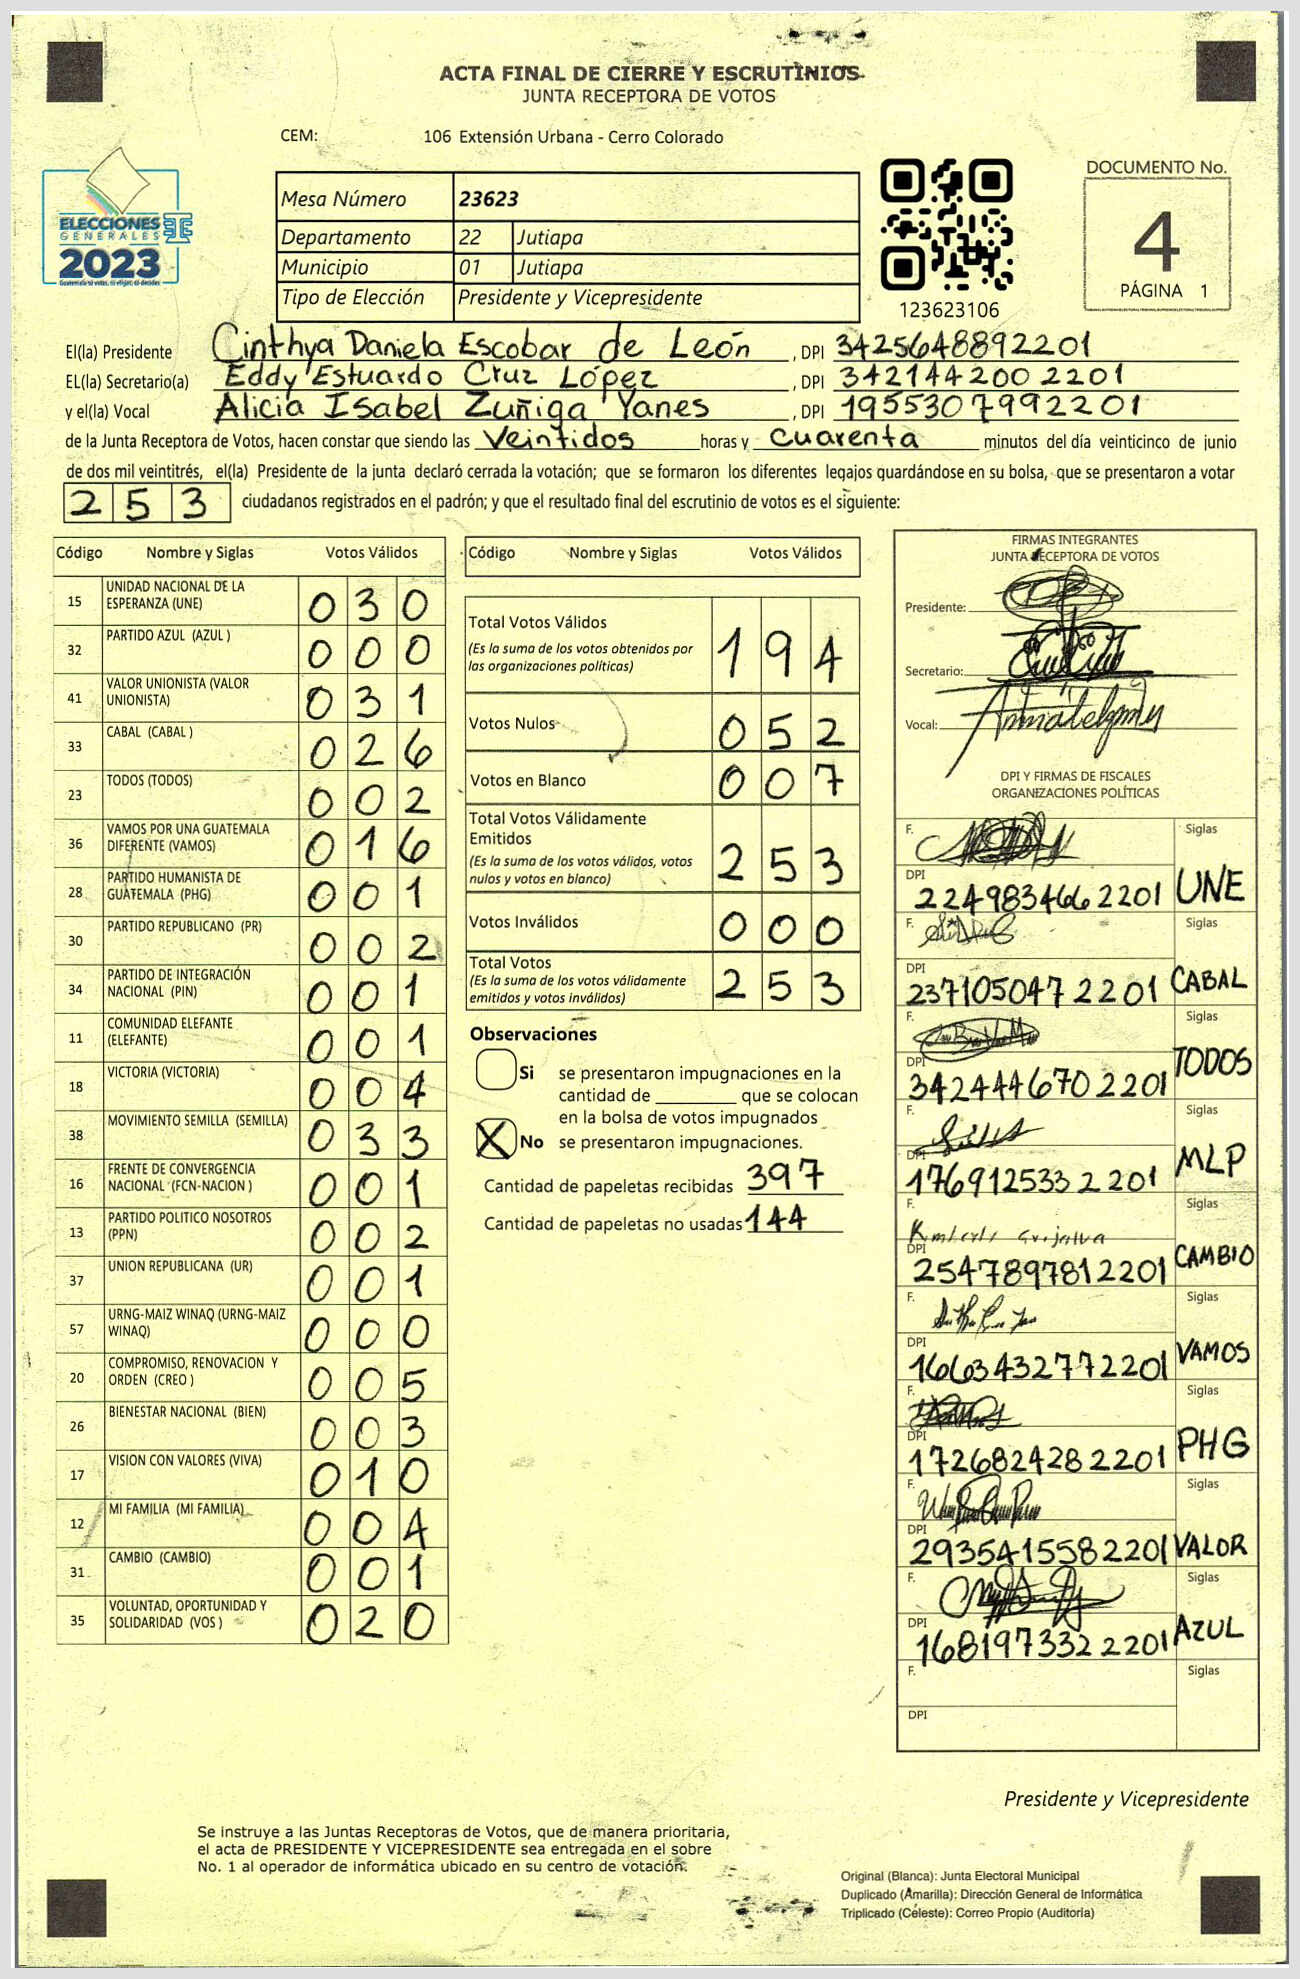 ACTA FINAL DE CIERRE Y ESCRUTINIOS
JUNTA RECEPTORA DE VOTOS
CEM: 106 Extensión Urbana - Cerro Colorado
ELECCIONES
GENERALES
2023
Mesa Número 23623
Departamento 22 Jutiapa
Municipio 01 Jutiapa
Tipo de Elección Presidente y Vicepresidente
123623106
DOCUMENTO No.
4
PÁGINA 1
El(la) Presidente Cinthya Daniela Escobar de León , DPI 3425648892201
EL(la) Secretario(a) Eddy Estuardo Cruz López , DPI 3421442002201
y el(la) Vocal Alicia Isabel Zuñiga Yanes , DPI 1955307992201
de la Junta Receptora de Votos, hacen constar que siendo las Veintidos horas y cuarenta minutos del día veinticinco de junio
de dos mil veintitrés, el(la) Presidente de la junta declaró cerrada la votación; que se formaron los diferentes legajos guardándose en su bolsa, que se presentaron a votar
253 ciudadanos registrados en el padrón; y que el resultado final del escrutinio de votos es el siguiente:
Código Nombre y Siglas Votos Válidos
15 UNIDAD NACIONAL DE LA ESPERANZA (UNE) 030
32 PARTIDO AZUL (AZUL ) 000
41 VALOR UNIONISTA (VALOR UNIONISTA) 031
33 CABAL (CABAL ) 026
23 TODOS (TODOS) 002
36 VAMOS POR UNA GUATEMALA DIFERENTE (VAMOS) 016
28 PARTIDO HUMANISTA DE GUATEMALA (PHG) 001
30 PARTIDO REPUBLICANO (PR) 002
34 PARTIDO DE INTEGRACIÓN NACIONAL (PIN) 001
11 COMUNIDAD ELEFANTE (ELEFANTE) 001
18 VICTORIA (VICTORIA) 004
38 MOVIMIENTO SEMILLA (SEMILLA) 033
16 FRENTE DE CONVERGENCIA NACIONAL (FCN-NACION ) 001
13 PARTIDO POLITICO NOSOTROS (PPN) 002
37 UNION REPUBLICANA (UR) 001
57 URNG-MAIZ WINAQ (URNG-MAIZ WINAQ) 000
20 COMPROMISO, RENOVACION Y ORDEN (CREO ) 005
26 BIENESTAR NACIONAL (BIEN) 003
17 VISION CON VALORES (VIVA) 010
12 MI FAMILIA (MI FAMILIA) 004
31 CAMBIO (CAMBIO) 001
35 VOLUNTAD, OPORTUNIDAD Y SOLIDARIDAD (VOS ) 020
Código Nombre y Siglas Votos Válidos
Total Votos Válidos
(Es la suma de los votos obtenidos por
las organizaciones políticas) 194
Votos Nulos 052
Votos en Blanco 007
Total Votos Válidamente
Emitidos
(Es la suma de los votos válidos, votos
nulos y votos en blanco) 253
Votos Inválidos 000
Total Votos
(Es la suma de los votos válidamente
emitidos y votos inválidos) 253
Observaciones
Si se presentaron impugnaciones en la
cantidad de _________ que se colocan
en la bolsa de votos impugnados
X No se presentaron impugnaciones.
Cantidad de papeletas recibidas 397
Cantidad de papeletas no usadas 144
FIRMAS INTEGRANTES
JUNTA RECEPTORA DE VOTOS
Presidente:
Secretario:
Vocal:
DPI Y FIRMAS DE FISCALES
ORGANIZACIONES POLÍTICAS
F. Siglas
DPI 2249834662201 UNE
F. Siglas
DPI 2371050472201 CABAL
F. Siglas
DPI 3424446702201 TODOS
F. Siglas
DPI 1769125332201 MLP
F. Kimberly Grijalva Siglas
DPI 2547897812201 CAMBIO
F. Siglas
DPI 1663432772201 VAMOS
F. Siglas
DPI 1726824282201 PHG
F. Siglas
DPI 2935415582201 VALOR
F. Siglas
DPI 1681973322201 AZUL
F. Siglas
DPI
Presidente y Vicepresidente
Se instruye a las Juntas Receptoras de Votos, que de manera prioritaria,
el acta de PRESIDENTE Y VICEPRESIDENTE sea entregada en el sobre
No. 1 al operador de informática ubicado en su centro de votación.
Original (Blanca): Junta Electoral Municipal
Duplicado (Amarilla): Dirección General de Informática
Triplicado (Celeste): Correo Propio (Auditoría)